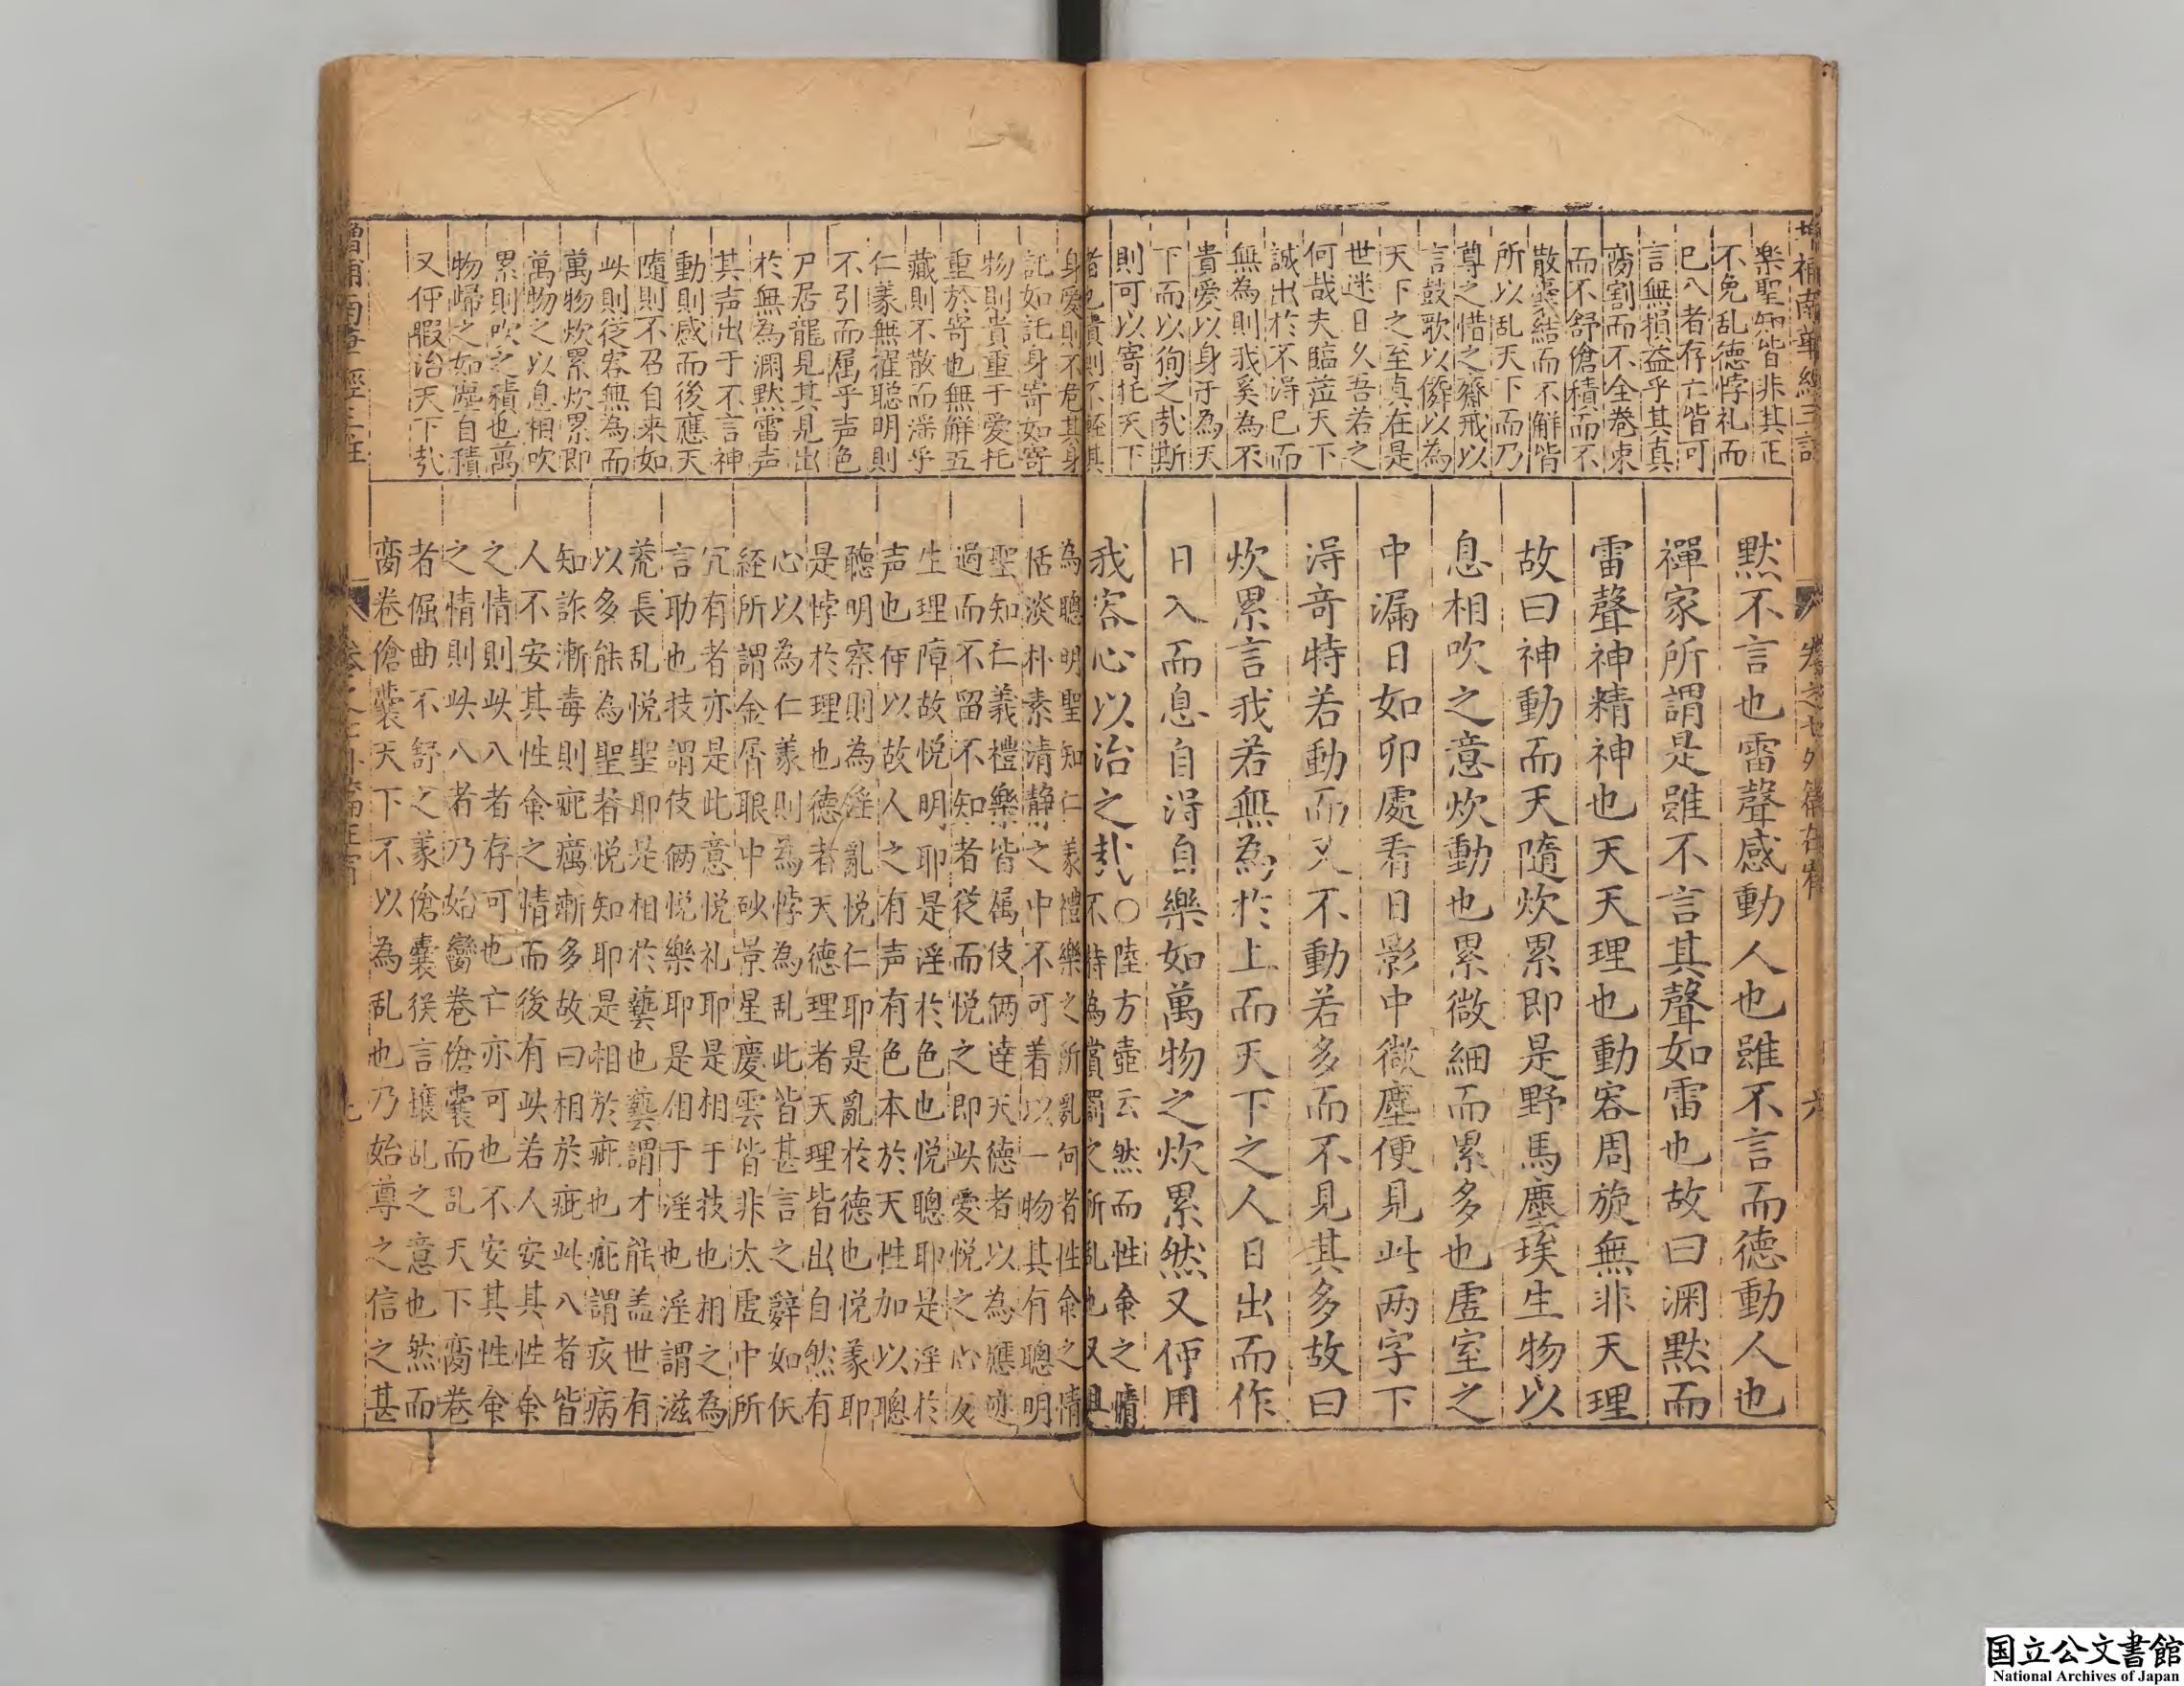 樂聖知皆非其正
不免乱德悖礼而
已八者存亡皆可
言無損益乎其真
臠割而不全卷束
而不舒傖積而不
散囊結而不解皆
所以乱天下而乃
尊之惜之齋戒以
言鼓歌以儛以為
天下之至真在是
世迷日久吾若之
何哉夫臨莅天下
誠出於不淂已而
無為則我奚為不
貴愛以身于為天
下而以徇之㢤斯
則可以寄托天下
者也貴則不輕其
默不言也雷聲感動人也雖不言而德動人也
禪家所謂是雖不言其聲如雷也故曰渊默而
雷聲神精神也天天理也動容周旋無非天理
故曰神動而天隨炊累即是野馬塵埃生物以
息相吹之意炊動也累微細而累多也虛室之
中漏日如卯處看日影中微塵便見此两字下
淂竒特若動而又不動若多而不見其多故曰
炊累言我若無為於上而天下之人日出而作
日入而息自淂自樂如萬物之炊累然又何用
我容心以治之㢤○陸方壺云然而性命之情
不特為賞罰之所乱也又且
身愛則不危其身
託如託身寄如寄
物則貴重于愛托
重於寄也無解五
藏則不散而淫乎
仁義無擢聰明則
不引而属乎声色
尸居龍見其見出
於無為渊默雷声
其声出于不言神
動則感而後應天
隨則不召自来如
此則從容無為而
萬物炊累炊累即
萬物之以息相吹
累則吹之積也萬
物歸之如塵自積
又何暇治天下㢤
為聰明聖知仁義禮樂之所亂何者性命之情
恬淡朴素清静之中不可着以一物其有聰明
聖知仁義禮樂皆属伎俩達天德者以為應迹
過而不留不知者從而悦之即此愛悦之心反
生理障故悦明耶是淫於色也悦聰耶是淫於
声也何以故人之有声有色本於天性加以聰
聽明察則為淫亂悦仁耶是亂於德也悦義耶
是悖於理也德者天德理者天理皆出自然有
心以為仁義則為悖為乱此皆甚言之辭如仸
経所謂金屑眼中砂景星慶雲皆非太虛中所
冗有者亦是此意悦礼耶是相于技也相之為
言助也技謂伎俩悦樂耶是相于淫也淫謂滋
荒長乱悦聖耶是相於藝也藝謂才能盖世有
以多能為聖者悦知耶是相於疵也疵謂疾病
知詐漸毒則疵癘漸多故曰相於疵此八者皆
人不安其性命之情而後有此若人安其性命
之情則此八者存可也亡亦可也不安其性命
之情則此八者乃始臠卷傖囊而乱天下臠卷
者倔曲不舒之義傖囊猨言攘乱之意也然而
臠卷傖囊天下不以為乱也乃始尊之信之甚
国立公文書館
National Archives of Japan